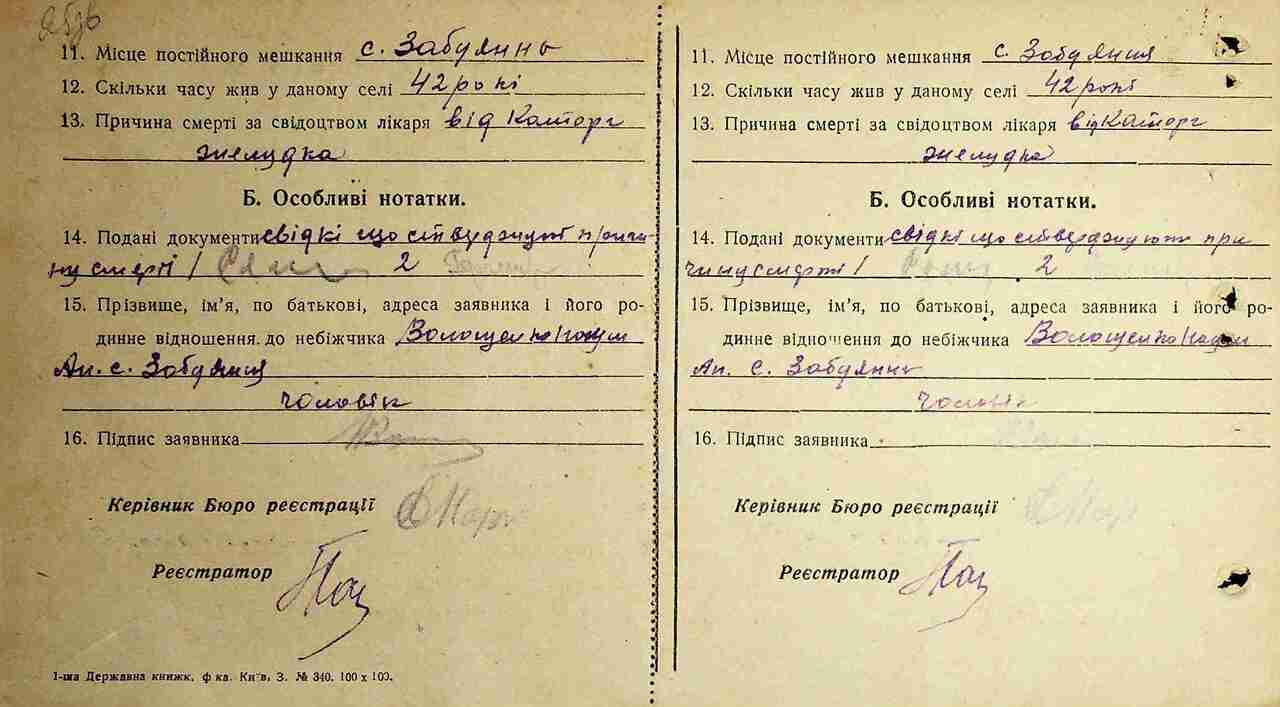 11. Місце постійного мешкання с. Забуянь
12. Скільки часу жив у даному селі 42 рокі
13. Причина смерті за свідоцтвом лікаря від Каторг
желудка
Б. Особливі нотатки.
14. Подані документи свідкі що ствуджуют причи
ну смерті / 2
15. Прізвище, ім'я, по батькові, адреса заявника і його ро-
динне відношення до небіжчика Волощенко
Ан. с. Забуяння
чоловік
16. Підпис заявника
Керівник Бюро реєстрації
Реєстратор
1-ша Державна книжк. ф-ка. Київ, З. № 340. 100 х 100.
11. Місце постійного мешкання с Забуяння
12. Скільки часу жив у даному селі 42 рокі
13. Причина смерті за свідоцтвом лікаря від Каторг
желудка
Б. Особливі нотатки.
14. Подані документи свідкі що ствуджуют при
чину смерті / 2
15. Прізвище, ім'я, по батькові, адреса заявника і його ро-
динне відношення до небіжчика Волощенко
Ан. с. Забуянь
чоловік
16. Підпис заявника
Керівник Бюро реєстрації
Реєстратор